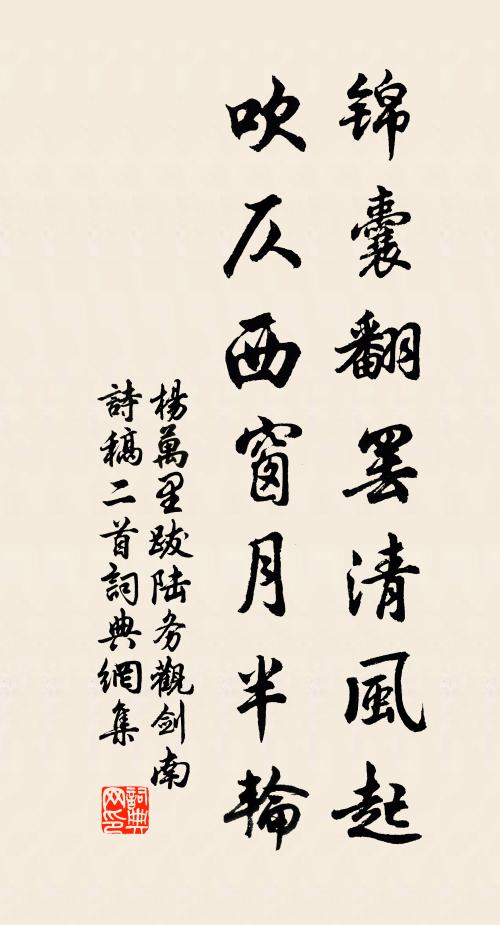 锦囊翻罢清風起
吹仄西窗月半輪
楊萬里跋陆务觀剑南
詩稿二首詞典網集
詞典
网印